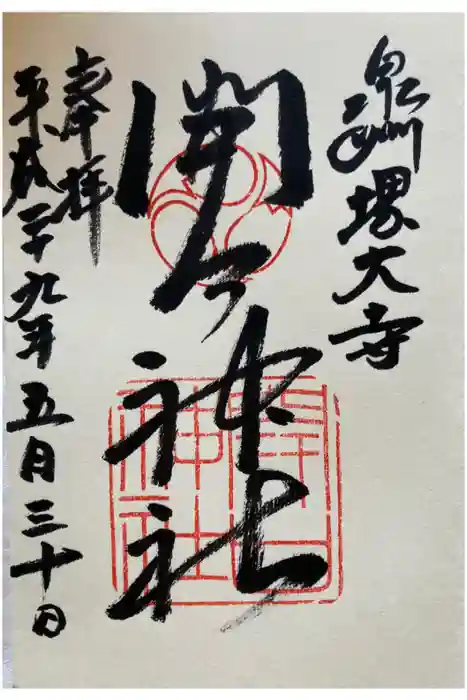 泉州堺大寺
開口神社
奉拝
平成二十九年五月三十日
開口
神社